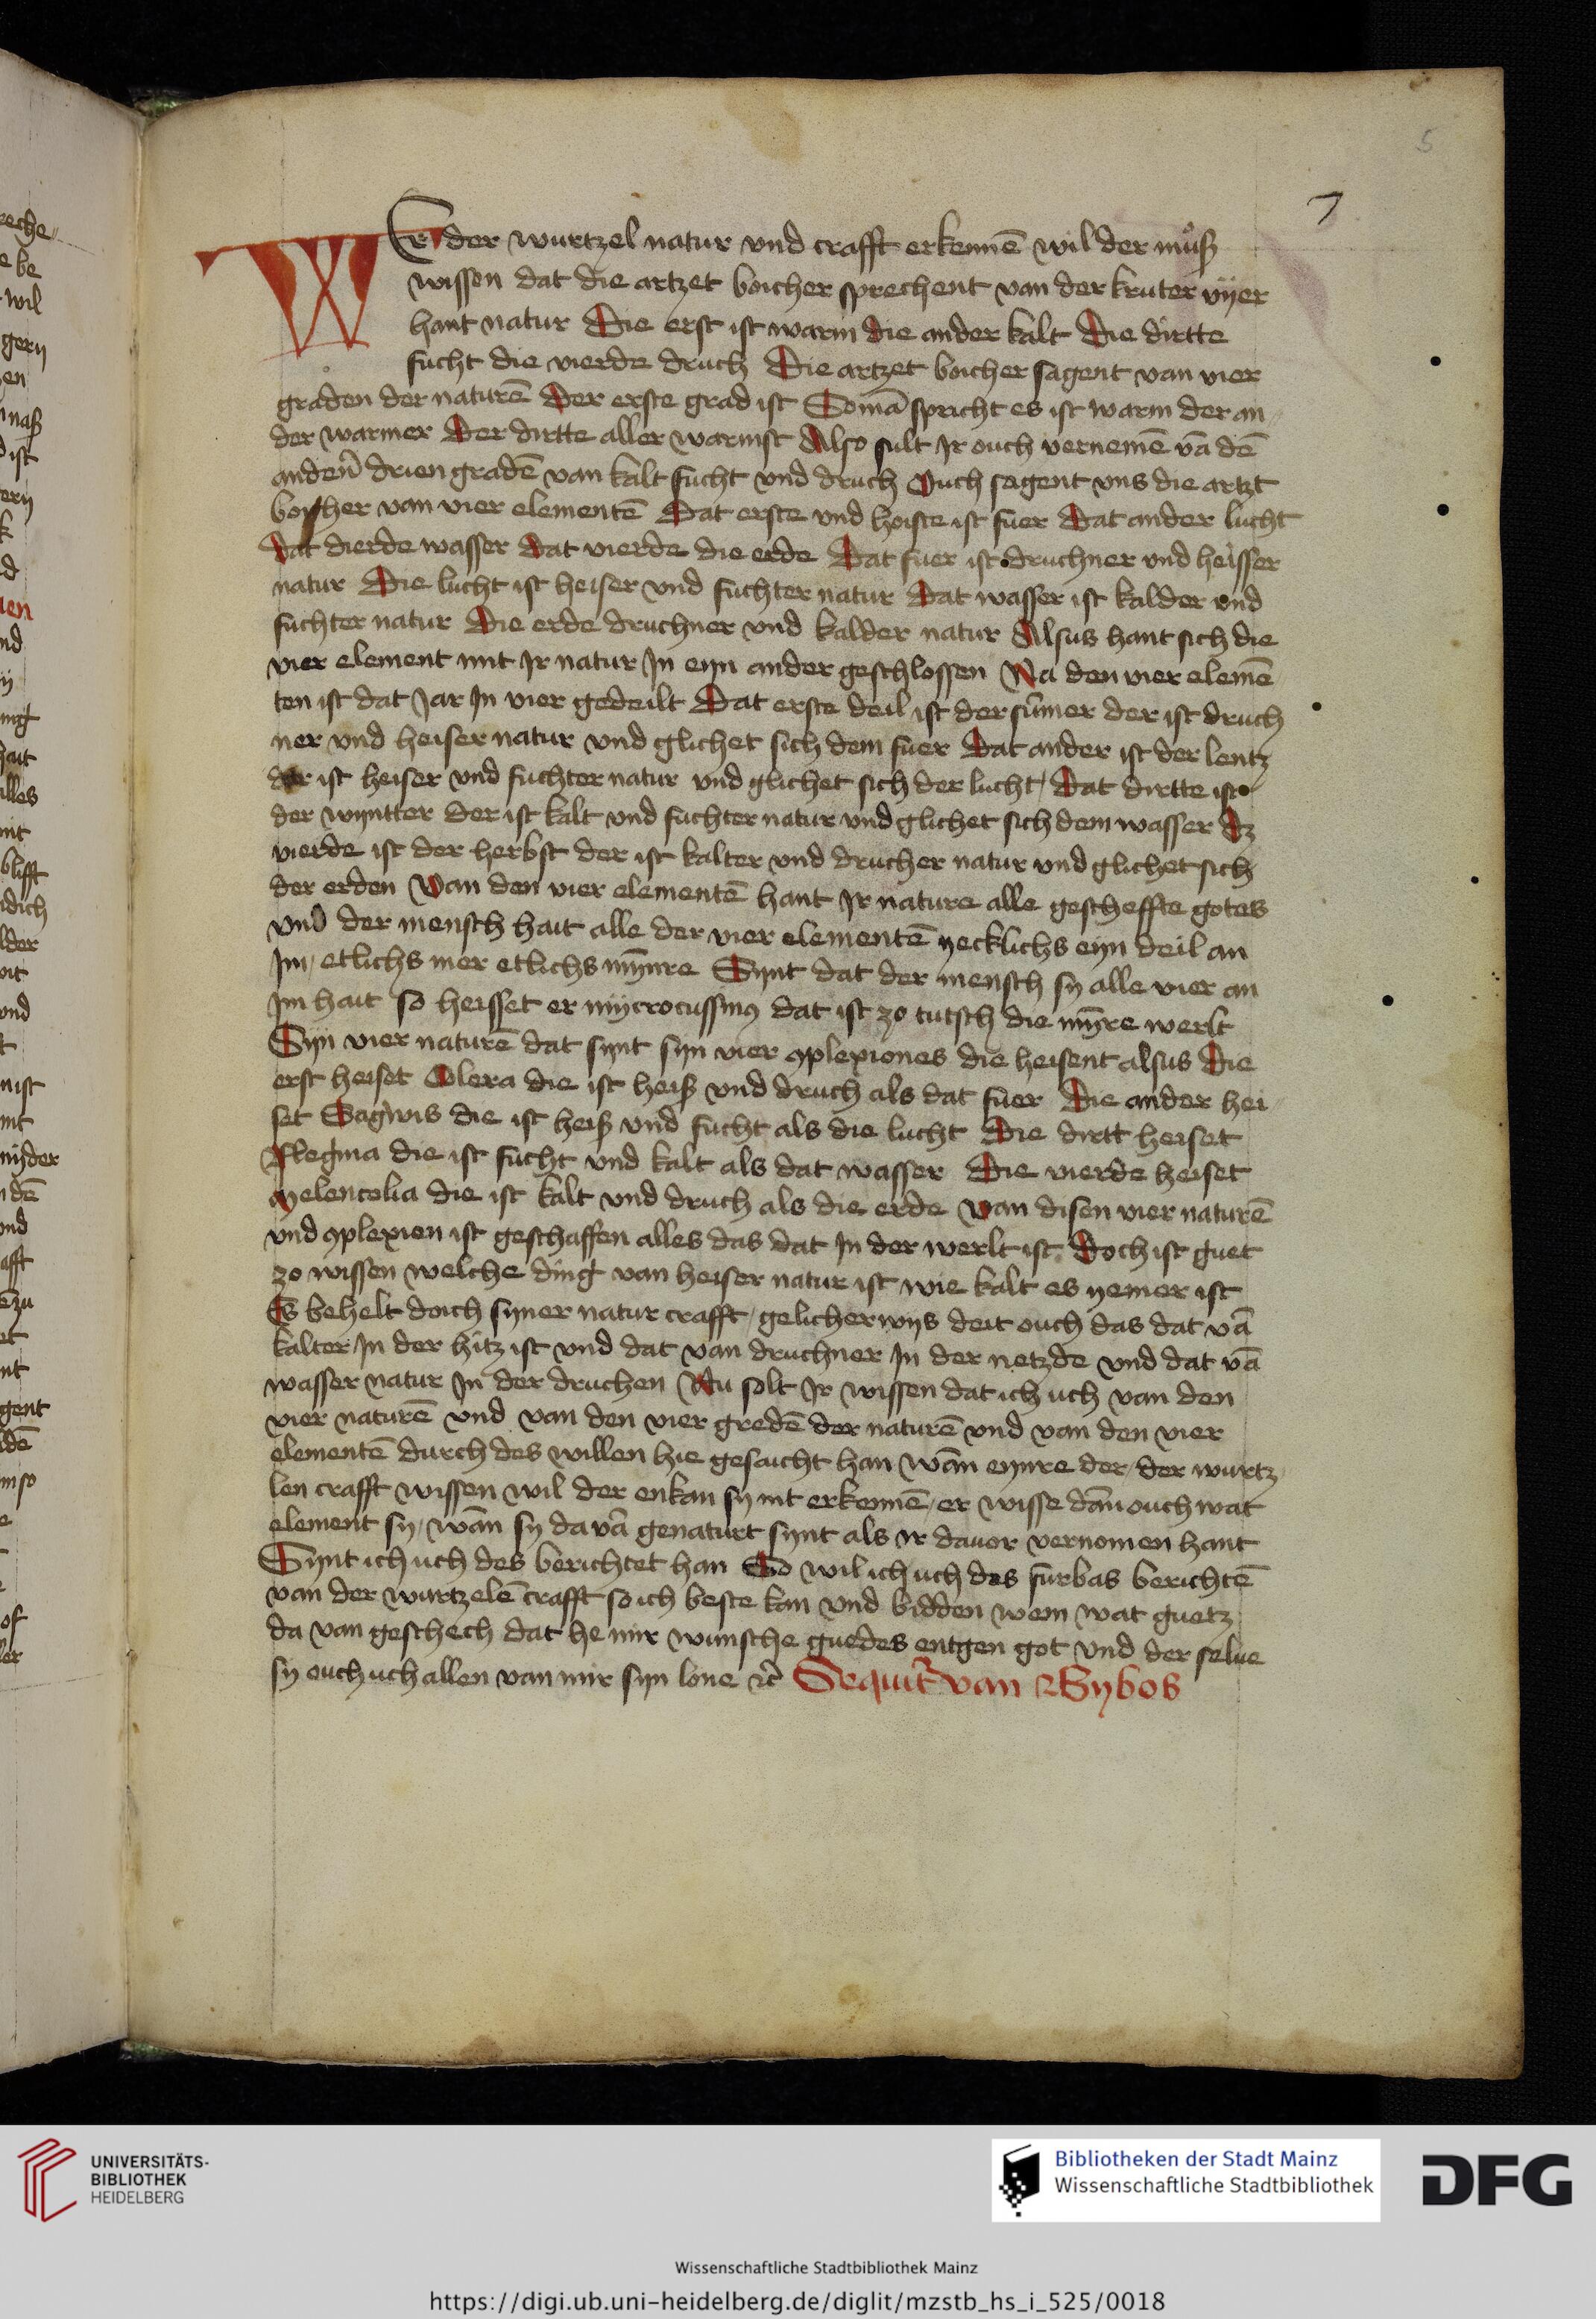 5
7
WEr der wurtzel natur vnd crafft erkennē wil der můß
wissen dat die artzet boicher sprechent van der kruter vyer
hant natur Die erst ist warm die ander kalt Die dirtte
fucht die vierde druch Die artzet boicher sagent van vier
graden der naturē Der erste grad ist So mā spricht es ist warm der an
der warmer Der dirtte aller warmst Also sult Ir ouch vernemē vā dē
anderñ drien gradē van kalt fucht vnd druch Ouch sagent vns die artzt
boicher van vier elementē Dat erste vnd hoiste ist fuer Dat ander lucht
Dat dierde wasser Dat vierde die erde Dat fuer ist druchner vnd heisser
natur Die lucht ist heiser vnd fuchter natur Dat wasser ist kalder vnd
fuchter natur Die erde druchner vnd kalder natur Alsus hant sich die
vier element mit Ir natur In eyn ander geschlossen Na den vier elemē
ten ist dat Jar In vier gedeilt Dat erste deil ist der sūmer der ist druch
ner vnd heiser natur vnd glichet sich dem fuer Dat ander ist der lentz
der ist heiser vnd fuchter natur vnd glichet sich der lucht / Dat dirtte ist
der wyntter der ist kalt vnd fuchter natur vnd glichet sich dem wasser Dz
vierde ist der herbst der ist kalter vnd drucher natur vnd glichet sich
der erden Van den vier elementē hant Ir nature alle gescheffte gotes
vnd der mensch hait alle der vier elementē yecklichs eyn deil an
Im / etlichs mer etlichs mȳnre Synt dat der mensch sy alle vier an
Im hait so heisset er mycrocussmꝰ dat ist zo tutsch die mȳre werlt
Syn vier naturē dat synt syn vier ꝯplexiones die heisent alsus Die
erst heiset Colera die ist heiß vnd druch als dat fuer Die ander hei
set Sagwis die ist heiß vnd fucht als die lucht Die dirtt heiset
Flegma die ist fucht vnd kalt als dat wasser Die vierde heiset
Melencolia die ist kalt vnd druch als die erde Van disen vier naturē
vnd ꝯplexien ist geschaffen alles das dat In der werlt ist Doch ist guet
zo wissen welche ding van heiser natur ist wie kalt es yemer ist
Es behelt doich syner natur crafft / gelicherwys deit ouch das dat vā
kalter In der hitz ist vnd dat van druchner In der netzde vnd dat vā
wasser natur In der druchen Nu solt Ir wissen dat ich uch van den
vier naturē vnd van den vier gredē der naturē vnd van den vier
elementē durch des willen hie gesaicht han wān eynre der / der wurtz
len crafft wissen wil der enkan sy nit erkennē / er wisse dān ouch wat
element sy / wān sy da vā genaturt synt als Ir dauor vernomen hant
Synt ich uch des berichtet han So wil ich uch des furbas berichtē
van der wurtzelē crafft so ich beste kan vnd bidden wem wat guetz
da van geschech dat he mir wunsche guedes entgen got vnd der selue
sy ouch uch allen van mir syn lone ꝛc̄ Sequit̃ van Bybos
UNIVERSITÄTS-
BIBLIOTHEK
HEIDELBERG
Bibliotheken der Stadt Mainz
Wissenschaftliche Stadtbibliothek
DFG
Wissenschaftliche Stadtbibliothek Mainz
https://digi.ub.uni-heidelberg.de/diglit/mzstb_hs_i_525/0018